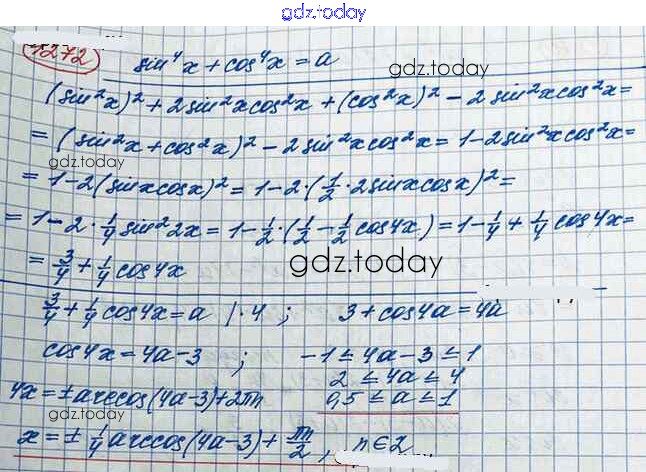 gdz.today
1272
sin⁴x + cos⁴x = a
gdz.today
(sin²x)² + 2sin²xcos²x + (cos²x)² − 2sin²xcos²x =
= (sin²x + cos²x)² − 2sin²xcos²x = 1 − 2sin²xcos²x =
gdz.today
= 1 − 2(sinxcosx)² = 1 − 2·(1/2·2sinxcosx)² =
= 1 − 2·1/4 sin²2x = 1 − 1/2·(1/2 − 1/2 cos4x) = 1 − 1/4 + 1/4 cos4x =
= 3/4 + 1/4 cos4x
gdz.today
3/4 + 1/4 cos4x = a |·4 ; 3 + cos4a = 4a
cos4x = 4a − 3 ; −1 ≤ 4a − 3 ≤ 1
2 ≤ 4a ≤ 4
4x = ± arccos(4a−3) + 2πn
0,5 ≤ a ≤ 1
gdz.today
x = ± 1/4 arccos(4a−3) + πn/2, n∈Z